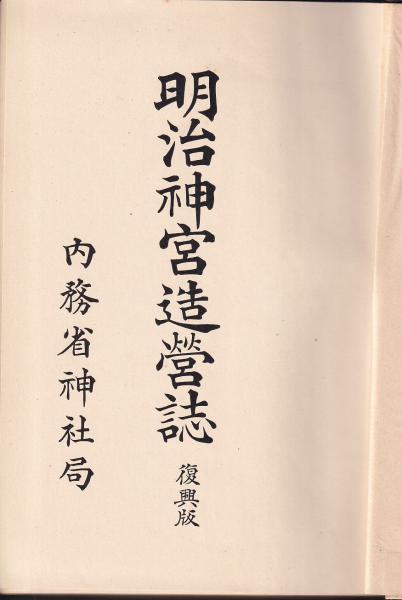 明治神宮造營誌
復興版
内務省神社局